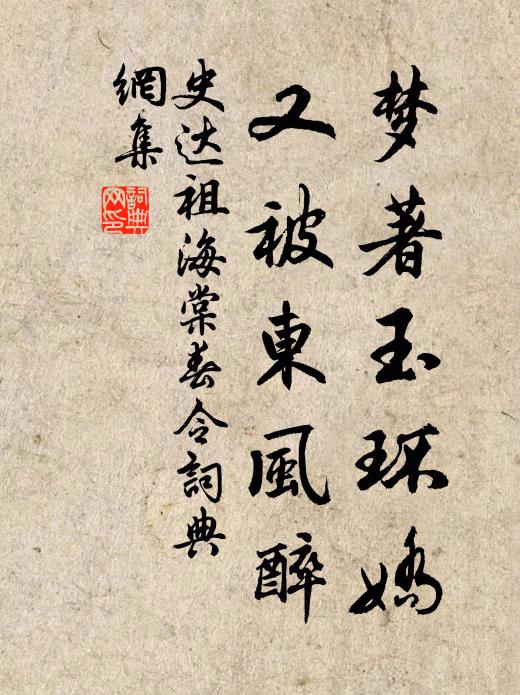 梦著玉环娇
又被東風醉
史达祖海棠春令詞典
網集
詞典网印